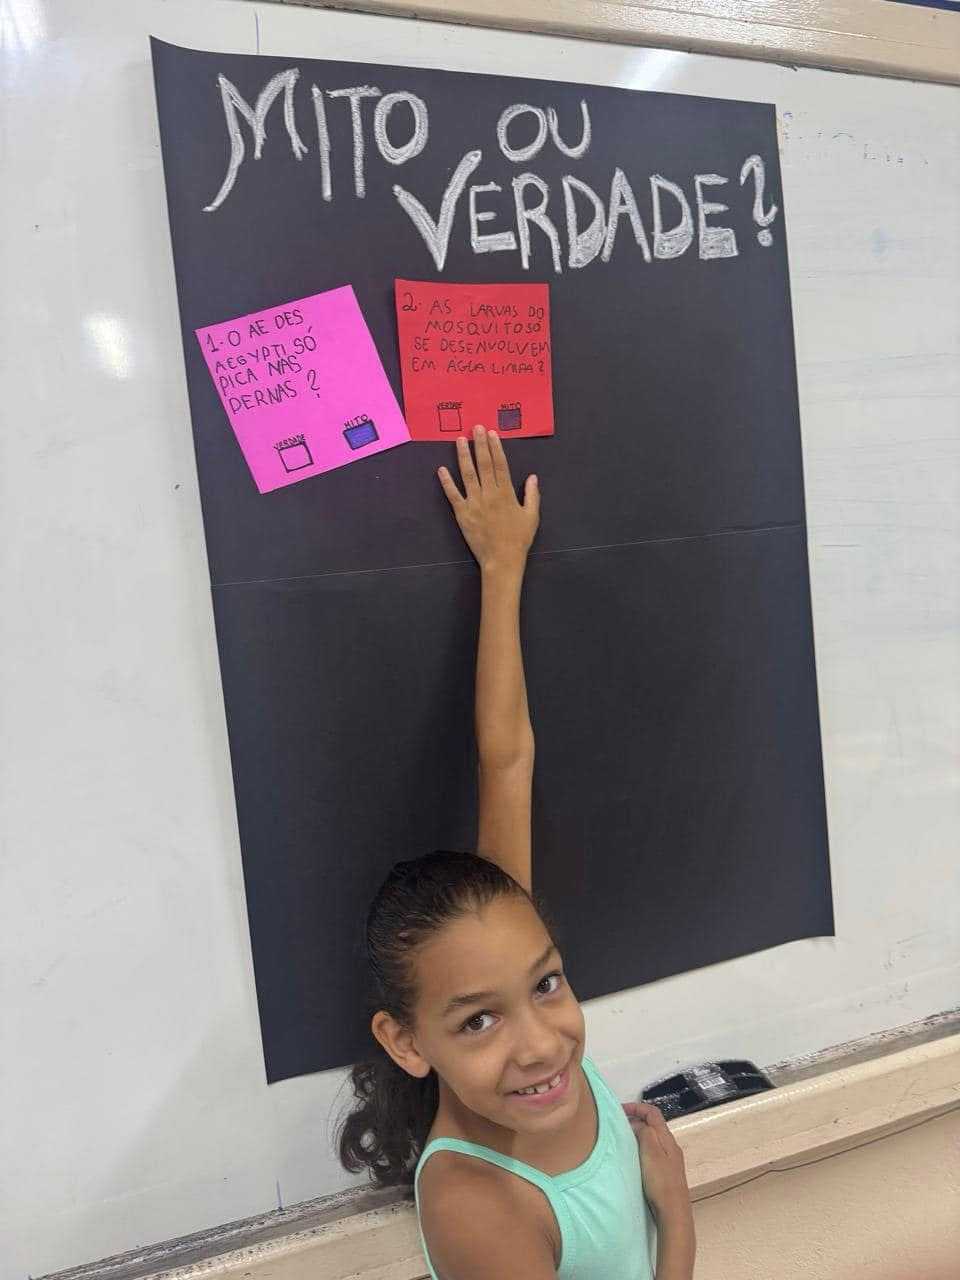 MITO OU
VERDADE?
1-O AE DES
AEGYPTI SÓ
PICA NAS
PERNAS ?
VERDADE
MITO
2- AS LARVAS DO
MOSQUITO SÓ
SE DESENVOLVEM
EM AGUA LIMPA?
VERDADE
MITO